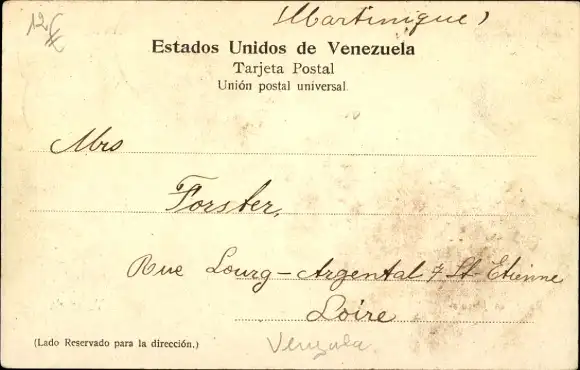 12€
(Martinique)
Estados Unidos de Venezuela
Tarjeta Postal
Unión postal universal.
Mrs
Forster,
Rue Lourg-Argental 7 St-Etienne
Loire
(Lado Reservado para la dirección.)
Venzula